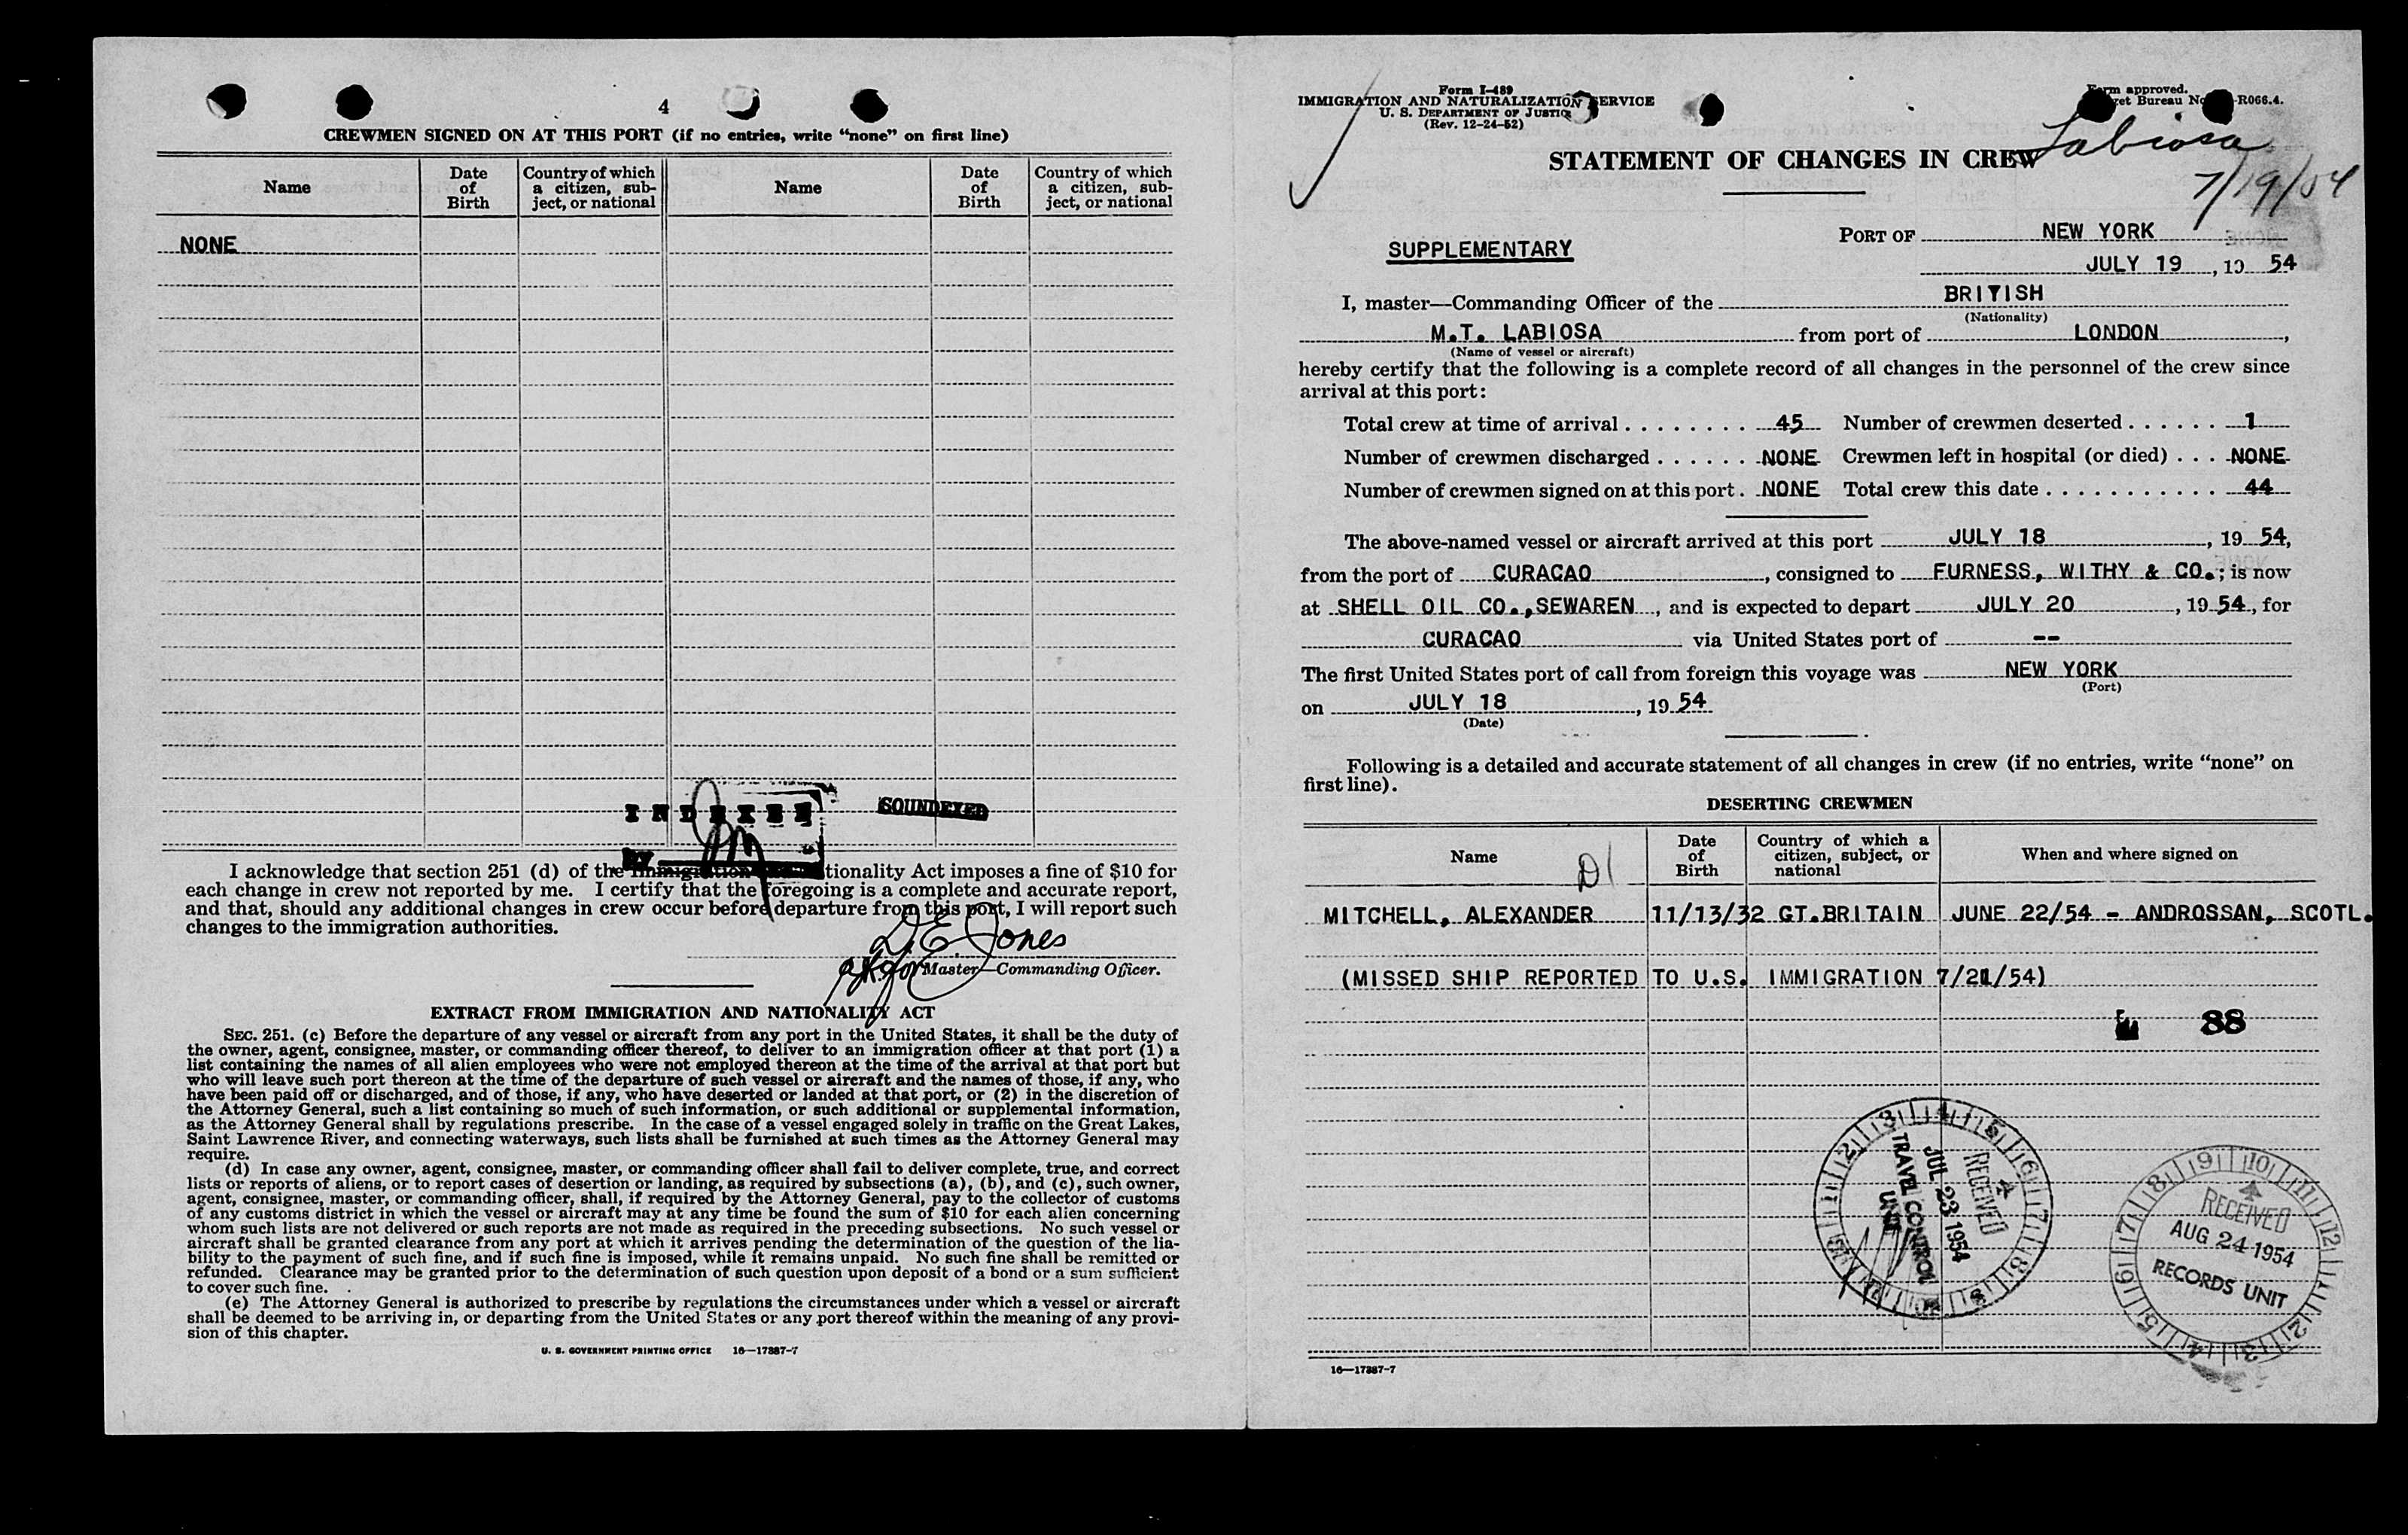 4
CREWMEN SIGNED ON AT THIS PORT (if no entries, write "none" on first line)
Name
Date of Birth
Country of which a citizen, sub-ject, or national
Name
Date of Birth
Country of which a citizen, sub-ject, or national
NONE
INDEXED
SOUNDEXED
BY
I acknowledge that section 251 (d) of the Immigration tionality Act imposes a fine of $10 for
each change in crew not reported by me. I certify that the foregoing is a complete and accurate report,
and that, should any additional changes in crew occur before departure from this port, I will report such
changes to the immigration authorities.
D.E. Jones
for Master—Commanding Officer.
EXTRACT FROM IMMIGRATION AND NATIONALITY ACT
SEC. 251. (c) Before the departure of any vessel or aircraft from any port in the United States, it shall be the duty of
the owner, agent, consignee, master, or commanding officer thereof, to deliver to an immigration officer at that port (1) a
list containing the names of all alien employees who were not employed thereon at the time of the arrival at that port but
who will leave such port thereon at the time of the departure of such vessel or aircraft and the names of those, if any, who
have been paid off or discharged, and of those, if any, who have deserted or landed at that port, or (2) in the discretion of
the Attorney General, such a list containing so much of such information, or such additional or supplemental information,
as the Attorney General shall by regulations prescribe. In the case of a vessel engaged solely in traffic on the Great Lakes,
Saint Lawrence River, and connecting waterways, such lists shall be furnished at such times as the Attorney General may
require.
(d) In case any owner, agent, consignee, master, or commanding officer shall fail to deliver complete, true, and correct
lists or reports of aliens, or to report cases of desertion or landing, as required by subsections (a), (b), and (c), such owner,
agent, consignee, master, or commanding officer, shall, if required by the Attorney General, pay to the collector of customs
of any customs district in which the vessel or aircraft may at any time be found the sum of $10 for each alien concerning
whom such lists are not delivered or such reports are not made as required in the preceding subsections. No such vessel or
aircraft shall be granted clearance from any port at which it arrives pending the determination of the question of the lia-
bility to the payment of such fine, and if such fine is imposed, while it remains unpaid. No such fine shall be remitted or
refunded. Clearance may be granted prior to the determination of such question upon deposit of a bond or a sum sufficient
to cover such fine.
(e) The Attorney General is authorized to prescribe by regulations the circumstances under which a vessel or aircraft
shall be deemed to be arriving in, or departing from the United States or any port thereof within the meaning of any provi-
sion of this chapter.
U. S. GOVERNMENT PRINTING OFFICE 16—17887-7
Form I-489
IMMIGRATION AND NATURALIZATION SERVICE
U. S. DEPARTMENT OF JUSTICE
(Rev. 12-24-52)
Form approved.
et Bureau No -R066.4.
Labiosa
7/19/54
STATEMENT OF CHANGES IN CREW
SUPPLEMENTARY
PORT OF NEW YORK
JULY 19, 19 54
I, master—Commanding Officer of the BRITISH
(Nationality)
M.T. LABIOSA from port of LONDON,
(Name of vessel or aircraft)
hereby certify that the following is a complete record of all changes in the personnel of the crew since
arrival at this port:
Total crew at time of arrival . . . . . . . . 45 Number of crewmen deserted . . . . . . 1
Number of crewmen discharged . . . . . . NONE Crewmen left in hospital (or died) . . . NONE
Number of crewmen signed on at this port . NONE Total crew this date . . . . . . . . . . . 44
The above-named vessel or aircraft arrived at this port JULY 18, 19 54,
from the port of CURACAO, consigned to FURNESS, WITHY & CO.; is now
at SHELL OIL CO.,SEWAREN, and is expected to depart JULY 20, 19 54, for
CURACAO via United States port of --
The first United States port of call from foreign this voyage was NEW YORK
(Port)
on JULY 18, 19 54
(Date)
Following is a detailed and accurate statement of all changes in crew (if no entries, write "none" on
first line).
DESERTING CREWMEN
Name
D1
Date of Birth
Country of which a citizen, subject, or national
When and where signed on
MITCHELL, ALEXANDER 11/13/32 GT.BRITAIN JUNE 22/54 - ANDROSSAN, SCOTL.
(MISSED SHIP REPORTED TO U.S. IMMIGRATION 7/21/54)
88
RECEIVED
JUL 23 1954
TRAVEL CONTROL
UNIT
RECEIVED
AUG 24 1954
RECORDS UNIT
16—17887-7